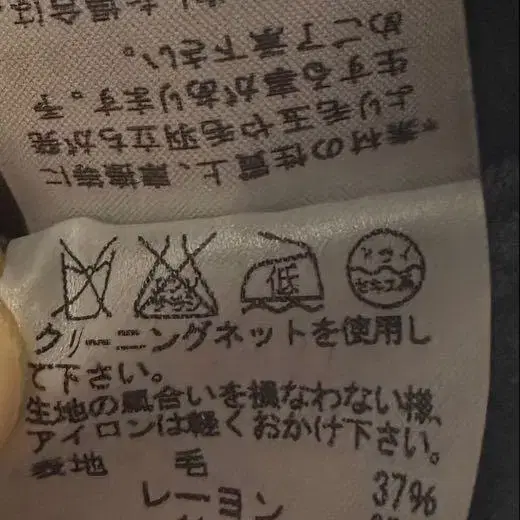 素材の性質上、摩擦等に
より毛玉や毛羽立ちが発
生する事があります。予
めご了承下さい。
した場合は
低 ドライ
クリーニングネットを使用し
て下さい。
生地の風合いを損なわない様、
アイロンは軽くおかけ下さい。
表地 毛 37%
レーヨン